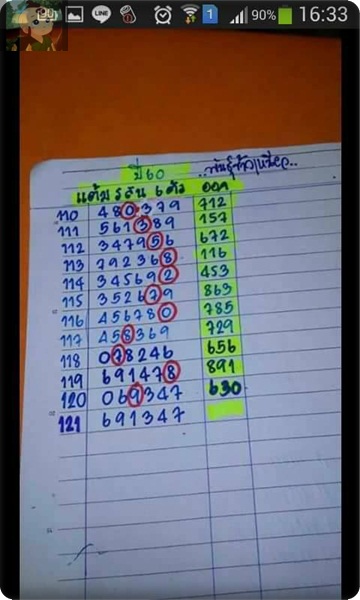 LINE 1 90% 16:33
ปี 60 ..พันธุ์ข้าวเหนียว..
แต้ม 6 ตัว ออก
110 480379 712
111 561389 157
112 347956 672
113 792368 116
114 345692 453
115 352679 863
116 456780 785
117 450369 729
118 078246 656
119 691478 891
120 069347 630
121 691347